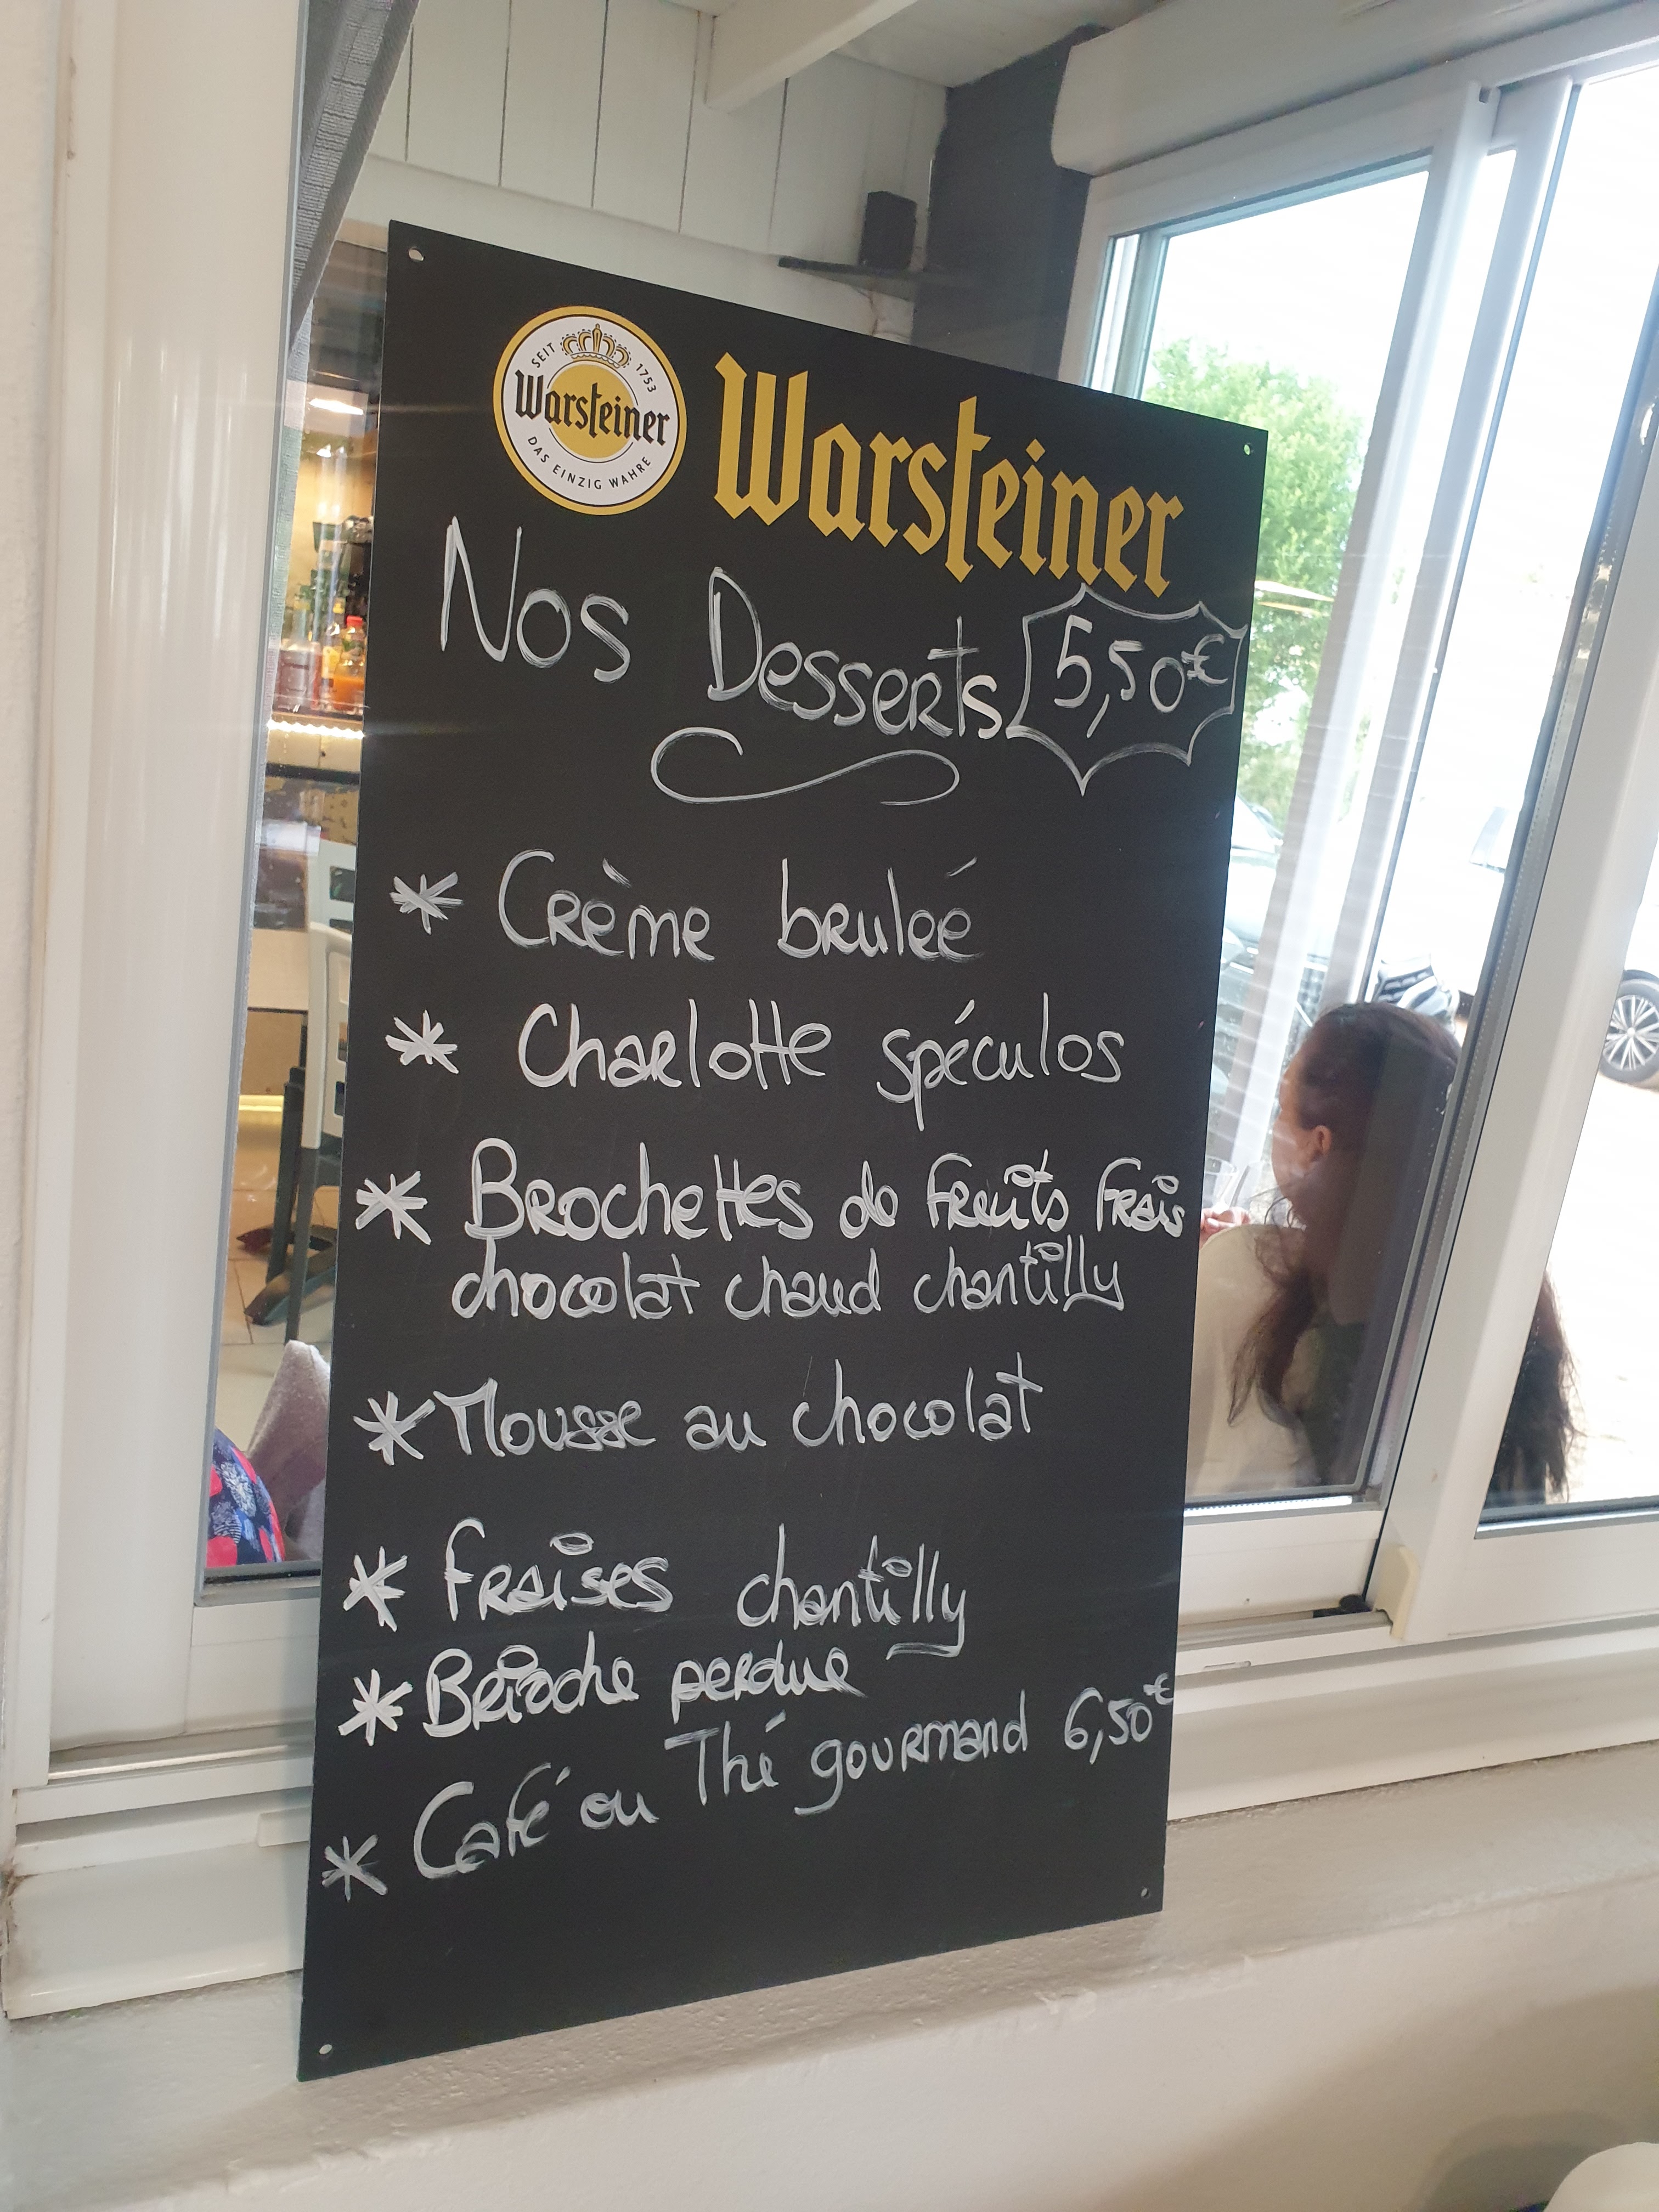 SEIT 1753
Warsteiner
DAS EINZIG WAHRE
Warsteiner
Nos Desserts 5,50€
* Crème brulée
* Charlotte spéculos
* Brochettes de fruits frais
chocolat chaud chantilly
* Mousse au chocolat
* Fraises chantilly
* Brioche perdue
* Café ou Thé gourmand 6,50€